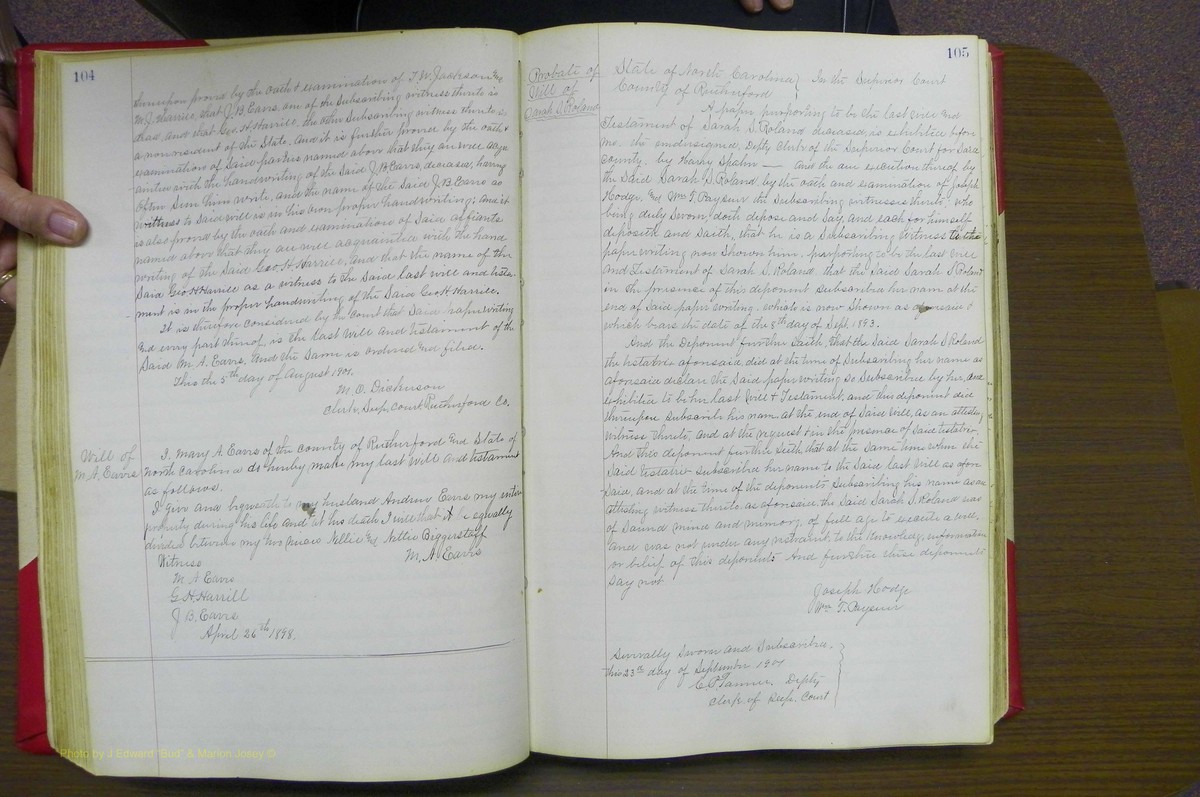 104
thereupon proved by the oath & examination of T. W. Jackson and
W. J. Harrill, that J. B. Eavis, one of the Subscribing witness thereto is
dead, and that Geo. H. Harrill, the other Subscribing witness thereto is
a nonresident of the State. And it is further proved by the oath &
examination of Said parties named above that they are well acqu-
ainted with the handwriting of the Said J. B. Eavis, deceased, having
often Seen him write, and the name of the Said J. B. Eavis as
witness to Said will is in his own proper handwriting; and it
is also proved by the oath and examinations of Said affiants
named above that they are well acquainted with the hand
writing of the Said Geo. H. Harrill, and that the name of the
Said Geo H Harrill as a witness to the Said last will and testa-
ment is in the proper handwriting of the Said Geo H. Harrill.
It is therefore considered by the Court that Said paper writing
and every part thereof is the Last Will and Testament of the
Said M. A. Eavis. And the Same is ordered and filed.
This the 5th day of August 1901.
M. O. Dickerson
Clerk, Sup. Court Rutherford Co.
Will of
M. A. Eavis
I. Mary A. Eavis of the county of Rutherford and State of
North Carolina do hereby make my last will and testament
as follows.
I give and bequeath to my husband Andrew Eavis my entire
property during his life and at his death I will that it be equally
divided between my two nieces Nellie and Nettie Biggerstaff
Witness
M. A. Eavis
M. A Eavis
G. H. Harrill
J B. Eavis
April 26th 1898.
105
Probate of
Will of
Sarah S. Roland
State of North Carolina } In the Superior Court
County of Rutherford }
A paper purporting to be the last will and
Testament of Sarah S. Roland deceased, is exhibited before
me, the undersigned, Depty Clerk of the Superior Court for Said
county, by Harry Spahn — and the due execution thereof by
the Said Sarah S. Roland, by the oath and examination of Joseph
Hodge and Wm T. Paysur the Subscribing witnesses thereto; who
being duly Sworn, doth depose and Say, and each for himself
deposeth and Saith, that he is a Subscribing witness to the
paper writing now Shown him, purporting to be the last will
and Testament of Sarah S. Roland, that the Said Sarah S Roland
in the presence of this deponent Subscribed her name at the
end of Said paper writing, which is now Shown as aforesaid &
which bears the date of the 8th day of Sept. 1893.
And the Deponent further Saith, that the Said Sarah S Roland
the testatrix aforesaid, did at the time of Subscribing her name as
aforesaid declare the Said paper writing so Subscribed by her, and
exhibited to be her last Will & Testament, and this deponent did
thereupon Subscribe his name at the end of Said Will, as an attesting
witness thereto, and at the request & in the presence of Said testatrix.
And this deponent further Saith, that at the Same time when the
Said testatrix Subscribed her name to the Said last Will as afore
Said, and at the time of the deponents Subscribing his name as an
attesting witness thereto as aforesaid, the Said Sarah S. Roland was
of Sound mind and memory, of full age to execute a will,
and was not under any restraint, to the knowledge, information
or belief of this deponents. And further these deponents
Say not.
Joseph Hodge
Wm T. Paysur
Severally Sworn and Subscribed
this 23rd day of September 1901
C. P. Tanner. Depty
Clerk of Sup. Court
Photo by J Edward "Bud" & Marion Josey ©